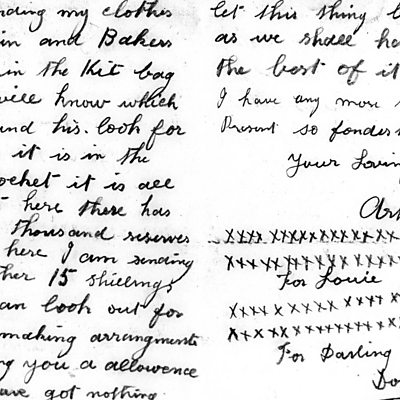 nding my clothes
in and Bakers
in the Kit bag
will know which
und his. look for
it is in the
ocket it is all
here there has
thousand reserves
here I am sending
her 15 shillings
an look out for
making arrangments
g you a allowence
ave got nothing
let this thing b
as we shall ha
the best of it
I have any more
Present so fondes
Your Lovin
Ar
xxxx xxxxxxxxxxxxx
xxxx xxxxxxxxxxxxx
For Louie
xxxxx xxxx xxxx xxxx
x x xx xxxxxxxxxxxx
For Darling
Do